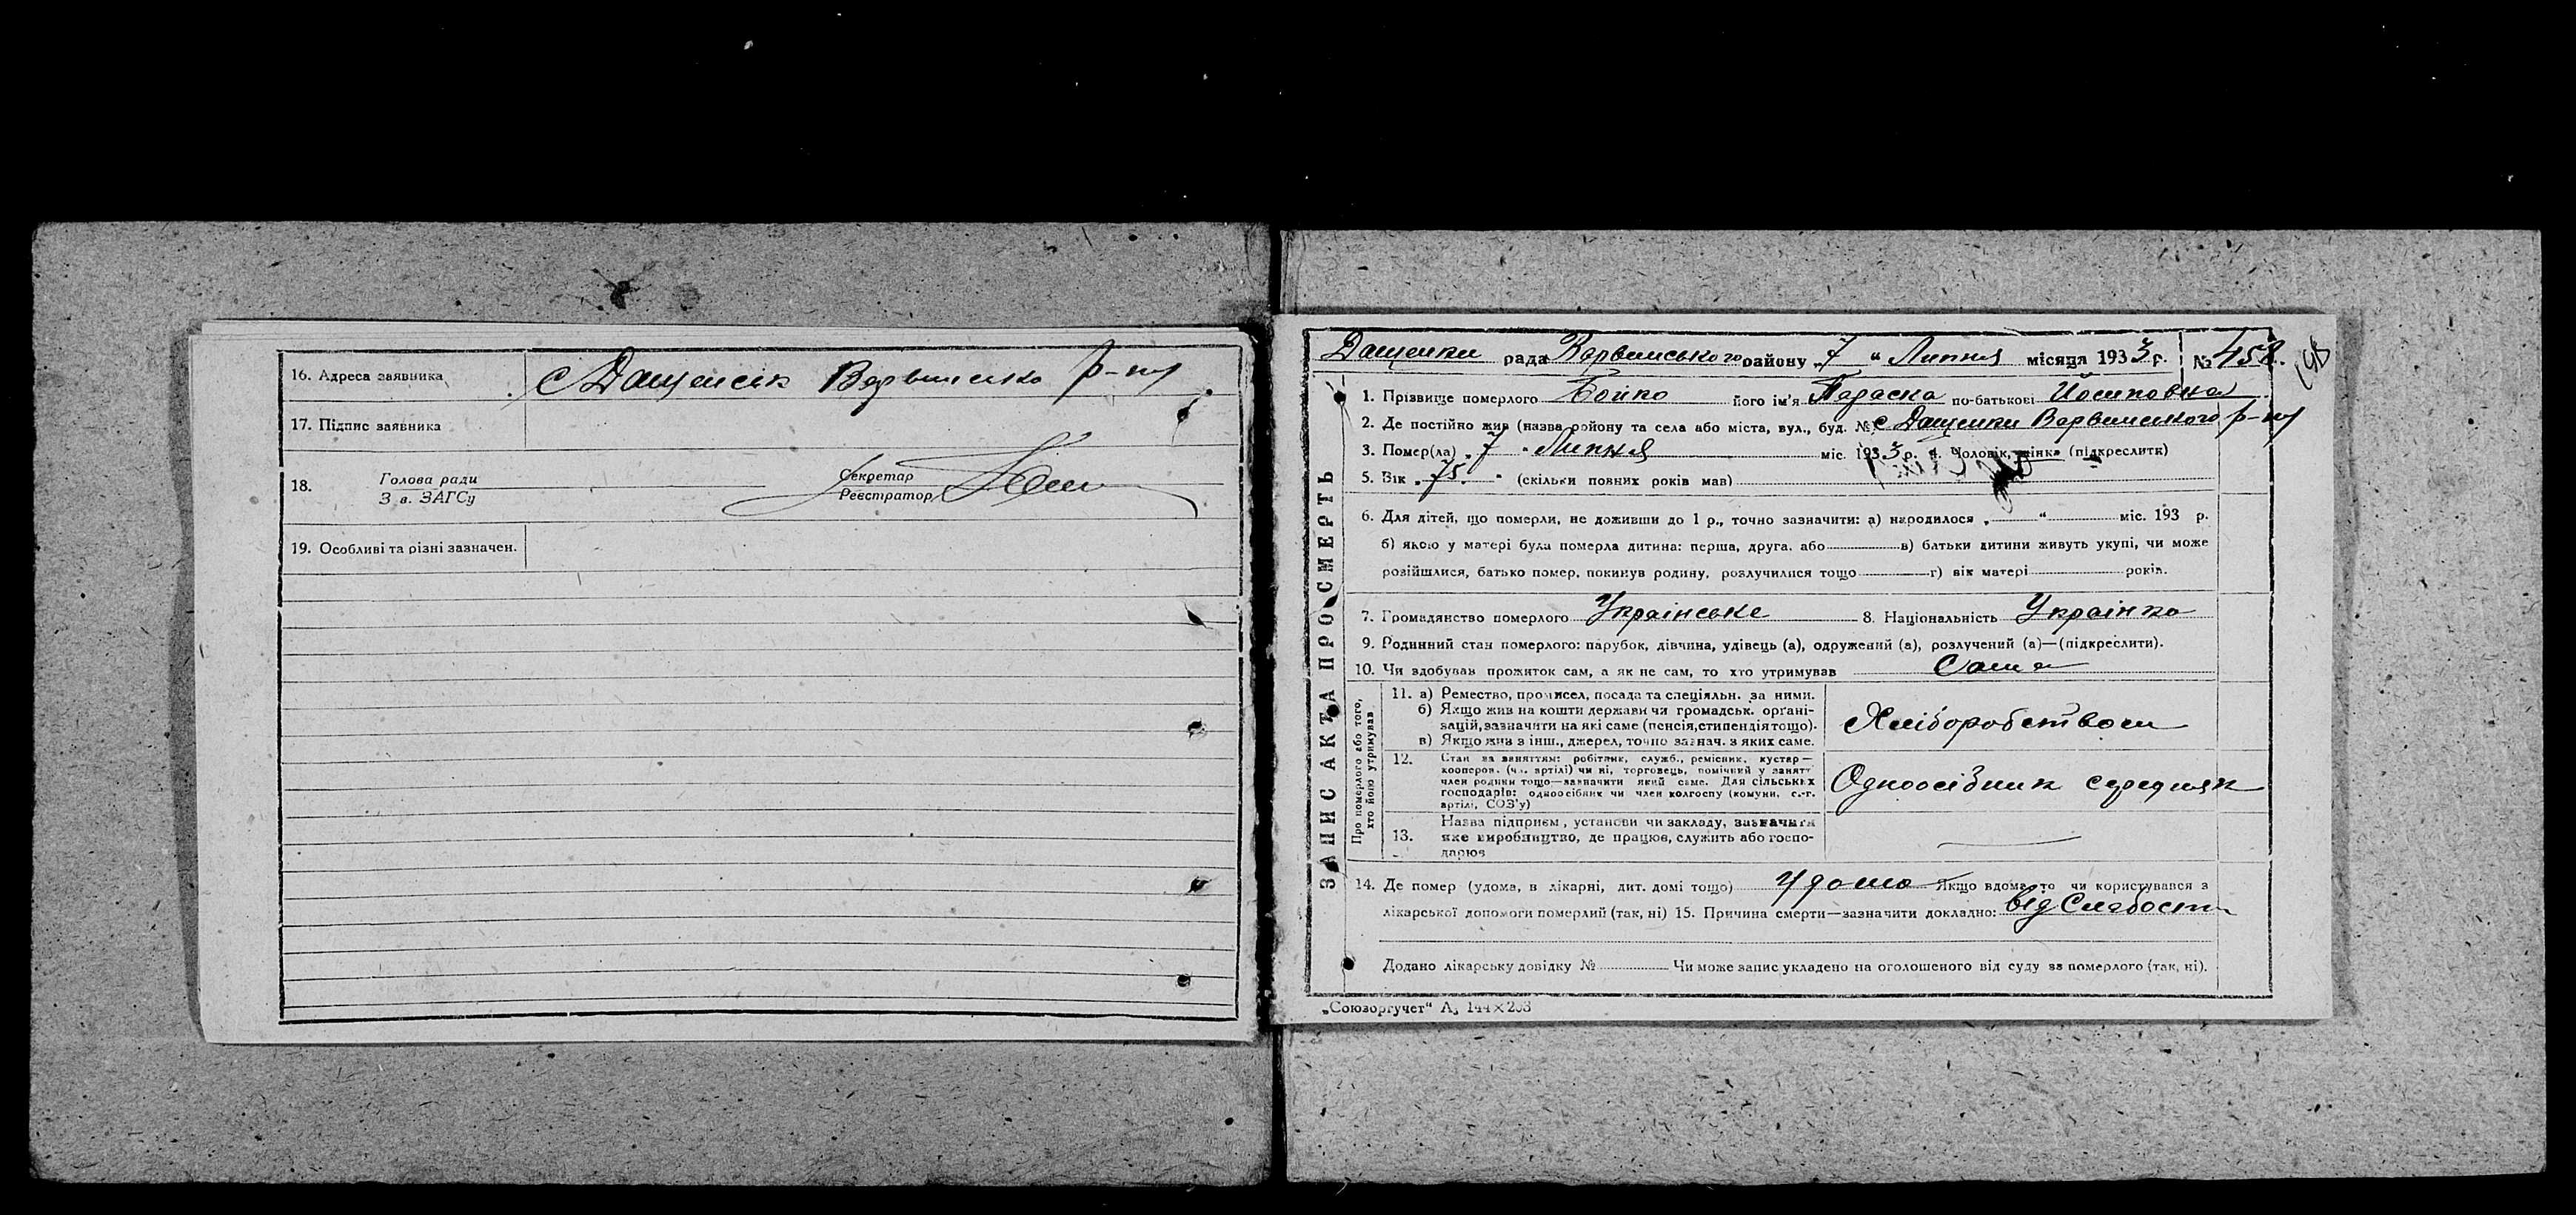 16. Адреса заявника с Дащенки Варвинсько р-ну
17. Підпис заявника
18. Голова ради Секретар
З в. ЗАГСу Реєстратор
19. Особливі та різні зазначен.
ЗАПИС АКТА ПРО СМЕРТЬ
Дащенки рада Варвинського району „7“ Липня місяця 1933 р. № 458.
1. Прізвище померлого Бойко його ім'я Параска по-батькові Йосиповна
2. Де постійно жив (назва району та села або міста, вул., буд. № с Дащенки Варвинського р-ну
3. Помер(ла) „7“ Липня міс. 1933 р. 4. Чоловік, жінка (підкреслити)
5. Вік „75“ (скільки повних років мав)
6. Для дітей, що померли, не доживши до 1 р., точно зазначити: а) народилося „ “ міс. 193 р.
б) якою у матері була померла дитина: перша, друга, або в) батьки дитини живуть укупі, чи може
розійшлися, батько помер, покинув родину, розлучилися тощо г) вік матері років.
7. Громадянство померлого Українське 8. Національність Українка
9. Родинний стан померлого: парубок, дівчина, удівець (а), одружений (а), розлучений (а)—(підкреслити).
10. Чи здобував прожиток сам, а як не сам, то хто утримував Сама
Про померлого або того, хто його утримував
11. а) Ремество, промисел, посада та спеціяльн. за ними.
б) Якщо жив на кошти держави чи громадськ. орґані-
зацій, зазначити на які саме (пенсія, стипендія тощо).
в) Якщо жив з інш., джерел, точно зазнач. з яких саме.
Хліборобством
12. Стан за заняттям: робітник, служб., ремісник, кустар—
кооперов. (чл. артілі) чи ні, торговець, помічний у занятт
член родини тощо—зазначити який саме. Для сільських
господарів: одноосібник чи член колгоспу (комуни, с.-г.
артілі, СОЗ'у)
Одноосібник середняк
13. Назва підприєм., установи чи закладу, зазначити
яке виробництво, де працює, служить або госпо-
дарює
14. Де помер (удома, в лікарні, дит. домі тощо) удома Якщо вдома, то чи користувався з
лікарської допомоги померлий (так, ні) 15. Причина смерти—зазначити докладно: від Слабости
Додано лікарську довідку № Чи може запис укладено на оголошеного від суду за померлого (так, ні).
„Союзоргучет“ А₅ 144×203